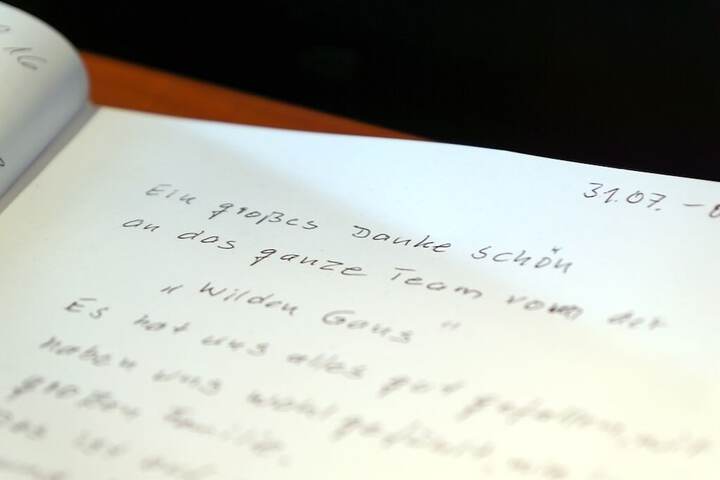 16
31.07. –
Ein großes Danke schön
an das ganze Team vom der
„ Wilden Gans "
Es hat uns alles gut gefallen, wir
haben uns wohl gefühlt, wie
großen Familie.